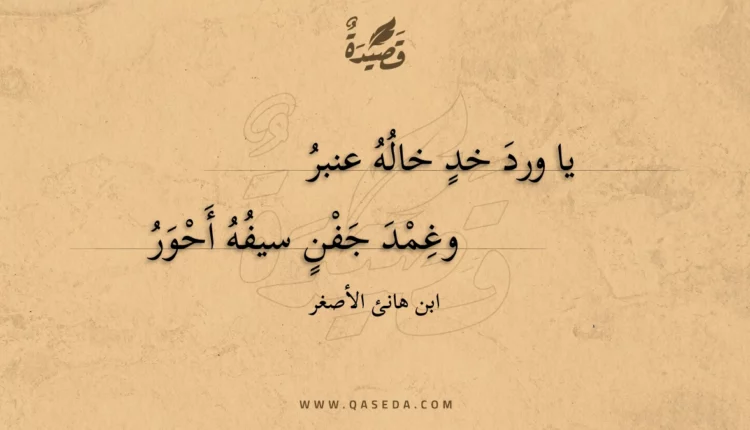 قَصِيْدَةٌ
يا وردَ خدٍ خالُهُ عنبرُ
وغِمْدَ جَفْنٍ سيفُهُ أَحْوَرُ
ابن هانئ الأصغر
WWW.QASEDA.COM